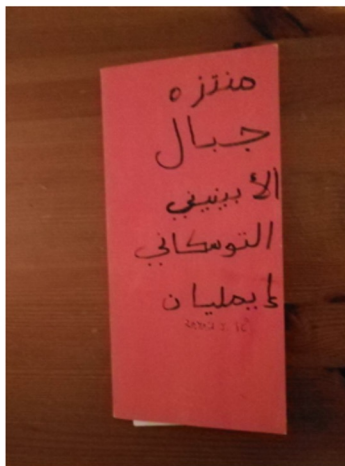 منتزه
جبال
الأبينيني
التوسكاني
لإيمليان